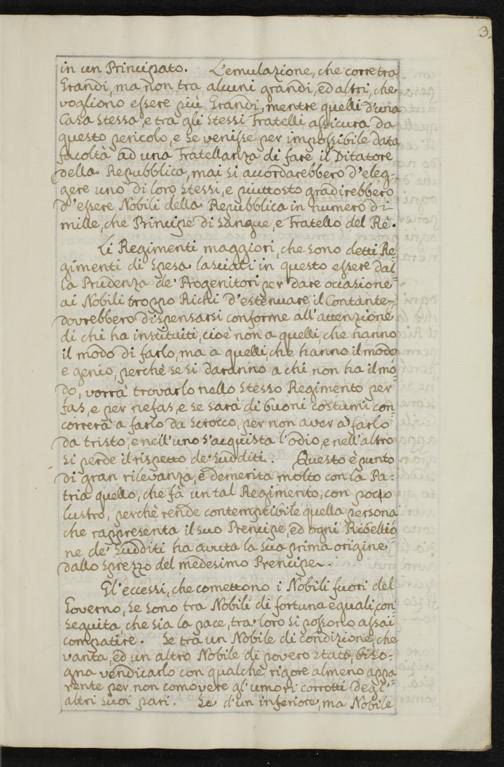 3
in un Principato. L'emulazione, che corre tra
Grandi, ma non tra alcuni grandi, ed altri, che
vogliono essere più Grandi, mentre quelli d'una
Casa stessa, e tra gli stessi Fratelli assicura da
questo pericolo, e se venisse per impossibile data
facoltà ad una Fratellanza di fare il Ditatore
della Republica, mai si accordarebbero d'eleg-
gere uno di loro stessi, e piuttosto gradirebbero
d'essere Nobili della Republica in numero di
mille, che Principe di Sangue, e Fratello del Rè.
Li Regimenti maggiori, che sono detti Re-
gimenti di Spesa lasciati in questo essere dal
la Prudenza de' Progenitori per dare ocasione
ai Nobili troppo Richi d'estenuare il Contante,
dovrebbero dispensarsi conforme all'attenzione
di chi ha instituiti, cioè non a quelli, che hanno
il modo di farlo, ma a quelli, che hanno il modo,
e genio, perchè se si daranno a chi non ha il mo-
do, vorrà trovarlo nello stesso Regimento per
fas, e per nefas, e se sarà di buoni costumi con
correrà a farlo da scrocco, per non aver a farlo
da tristo, e nell'uno s'acquista l'odio, e nell'altro
si perde il rispetto de' Sudditi. Questo è punto
di gran rilevanza, e demerita molto con la Pa-
tria quello, che fà un tal Regimento, con poco
lustro, perchè rende contemptibile quella persona
che rappresenta il suo Prencipe, ed ogni Ribellio
ne de' Sudditi ha avuta la sua prima origine
dallo sprezzo del medesimo Prencipe.
Gl'eccessi, che comettono i Nobili fuori del
Governo, se sono tra Nobili di fortuna equali, con
seguita che sia la pace, tra loro si possono assai
compatire. Se trà un Nobile di condizione, che
vanta, ed un altro Nobile di povero stato, biso-
gna vendicarlo con qualche rigore almeno appa
rente per non comovere gl'umori corrotti degl'
altri suoi pari. Se d'un inferiore, ma Nobile